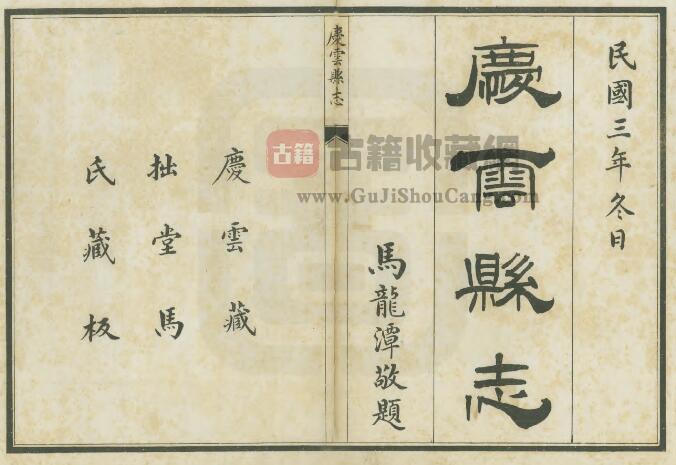 民國三年冬日
慶雲縣志
馬龍潭敬題
慶雲縣志
慶雲藏
拙堂馬
氏藏板
古籍
古籍收藏網
www.GuJiShouCang.com